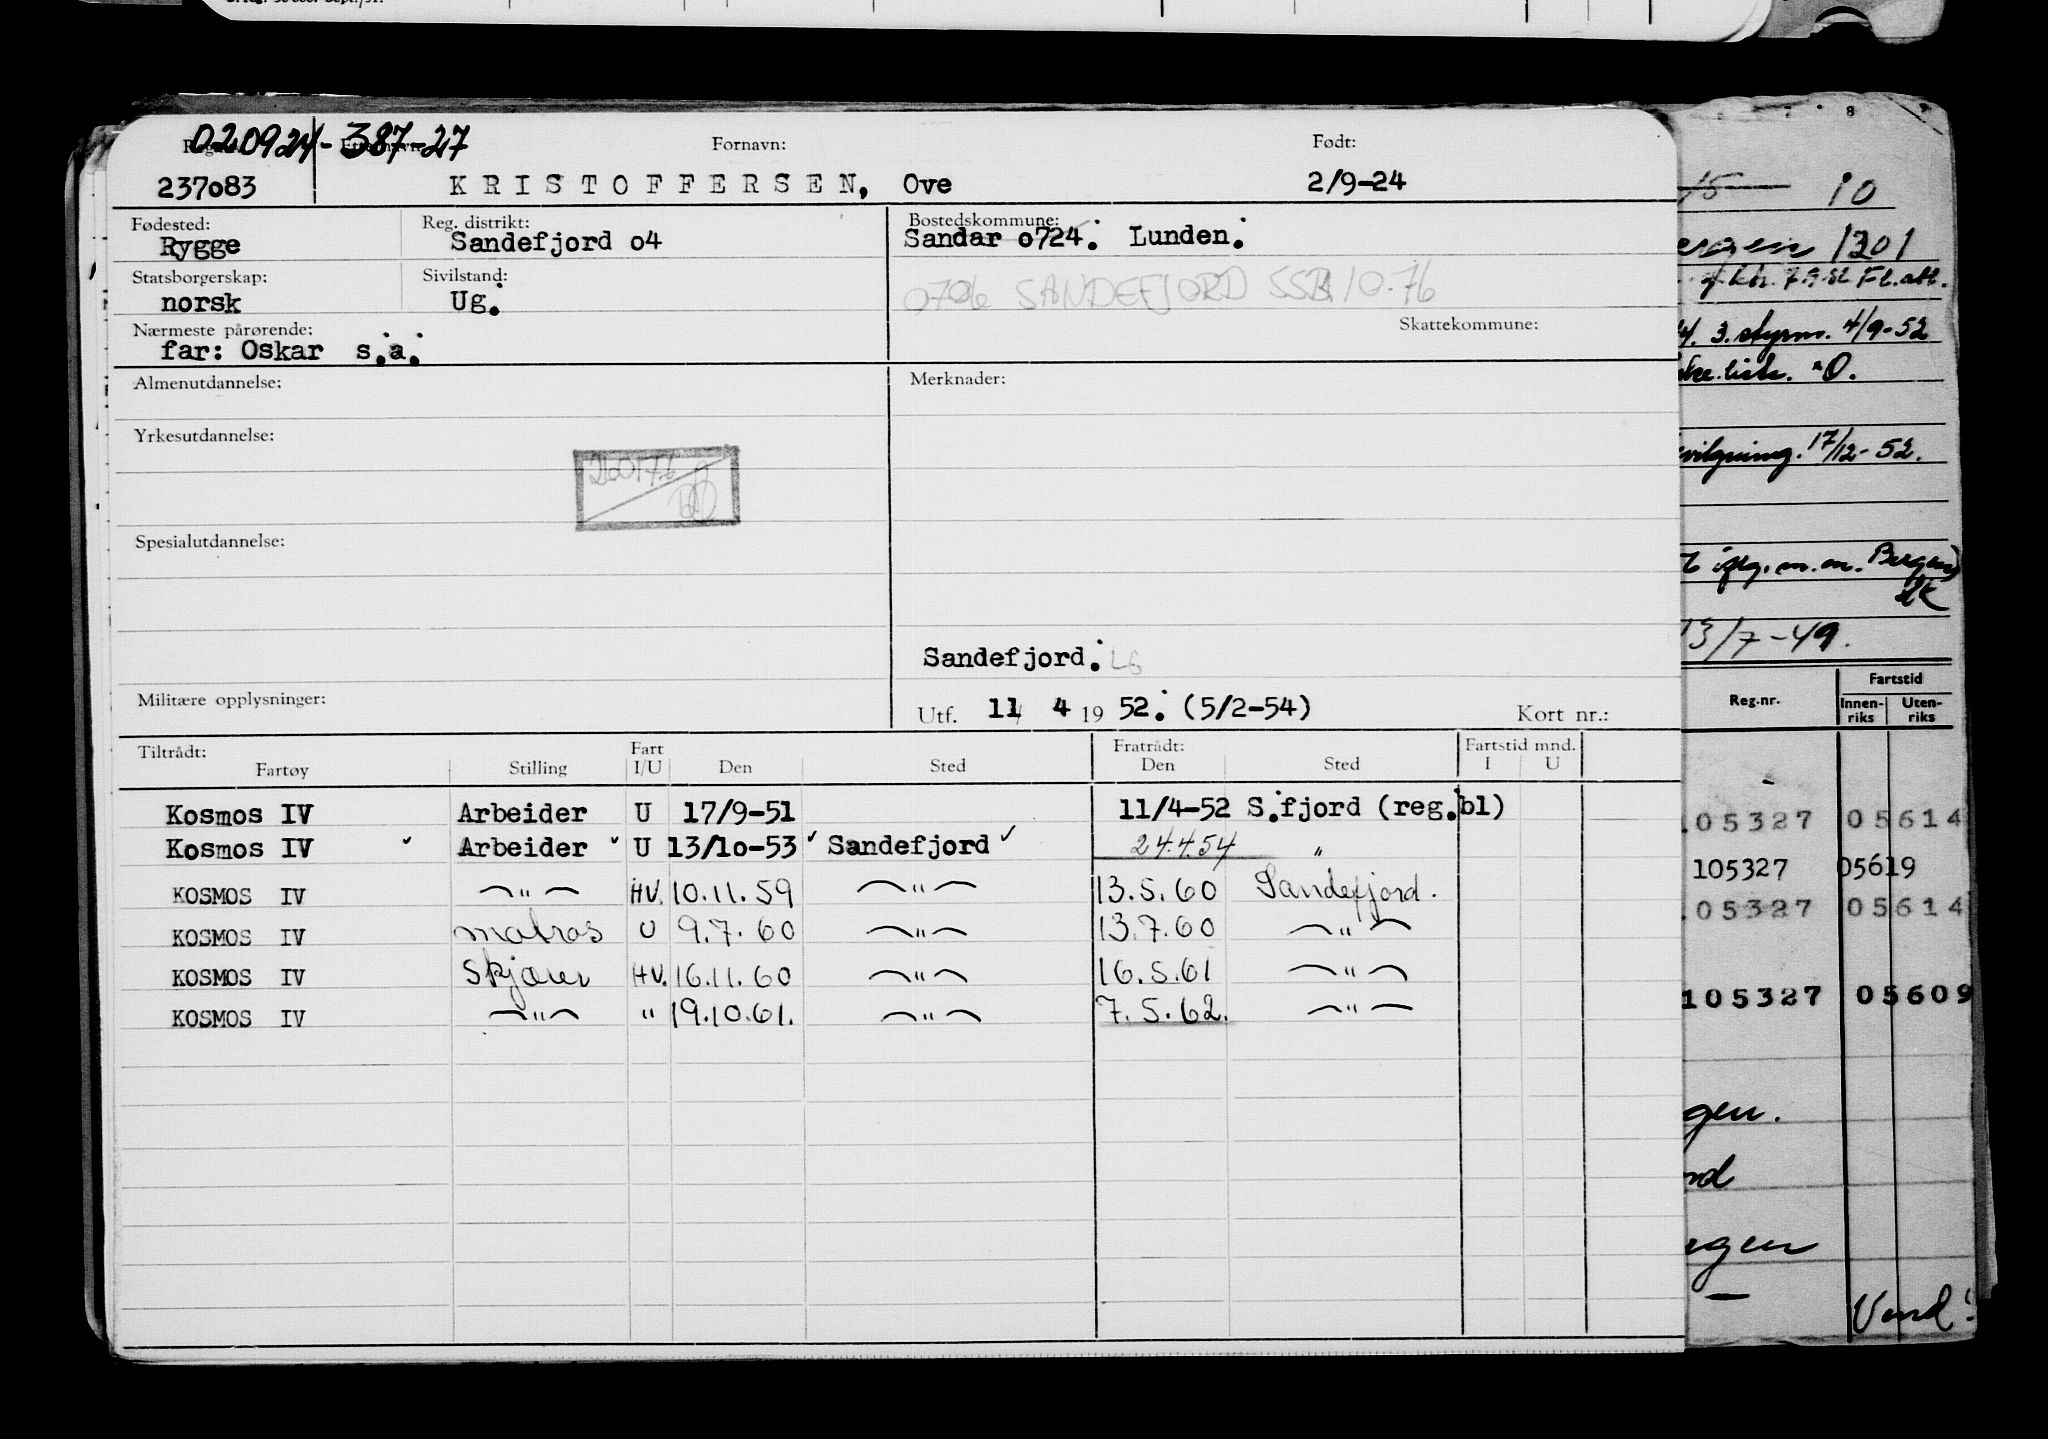 020924-387-27
Fornavn: Født:
237083 KRISTOFFERSEN, Ove 2/9-24
Fødested: Reg. distrikt: Bostedskommune:
Rygge Sandefjord o4 Sandar o724. Lunden.
Statsborgerskap: Sivilstand:
norsk Ug. 0706 SANDEFJORD SSB 10-76
Nærmeste pårørende: Skattekommune:
far: Oskar s.a.
Almenutdannelse: Merknader:
Yrkesutdannelse:
260176
Spesialutdannelse:
Sandefjord. LG
Militære opplysninger: Utf. 11 4 19 52. (5/2-54) Kort nr.:
Tiltrådt: Fart Fratrådt: Fartstid mnd.
Fartøy Stilling I/U Den Sted Den Sted I U
Kosmos IV Arbeider U 17/9-51 11/4-52 S.fjord (reg.bl)
Kosmos IV ✓ Arbeider ✓ U 13/10-53 ✓ Sandefjord ✓ 24.4.54 "
KOSMOS IV —"— HV. 10.11.59 —"— 13.5.60 Sandefjord.
KOSMOS IV matros U 9.7.60 —"— 13.7.60 —"—
KOSMOS IV Skjærer HV. 16.11.60 —"— 16.5.61 —"—
KOSMOS IV —"— " 19.10.61. —"— 7.5.62. —"—
7 8
15 10
1301
7.9.52 Fl.att.
3. styrm. 4/9-52
17/12-52.
m.m. Bergen)
13/7-49.
Fartstid
Reg.nr. Innen-riks Uten-riks
-
.05327 05614
105327 05619
.05327 05614
105327 05609
gen.
rd
rgen
—
Vend!